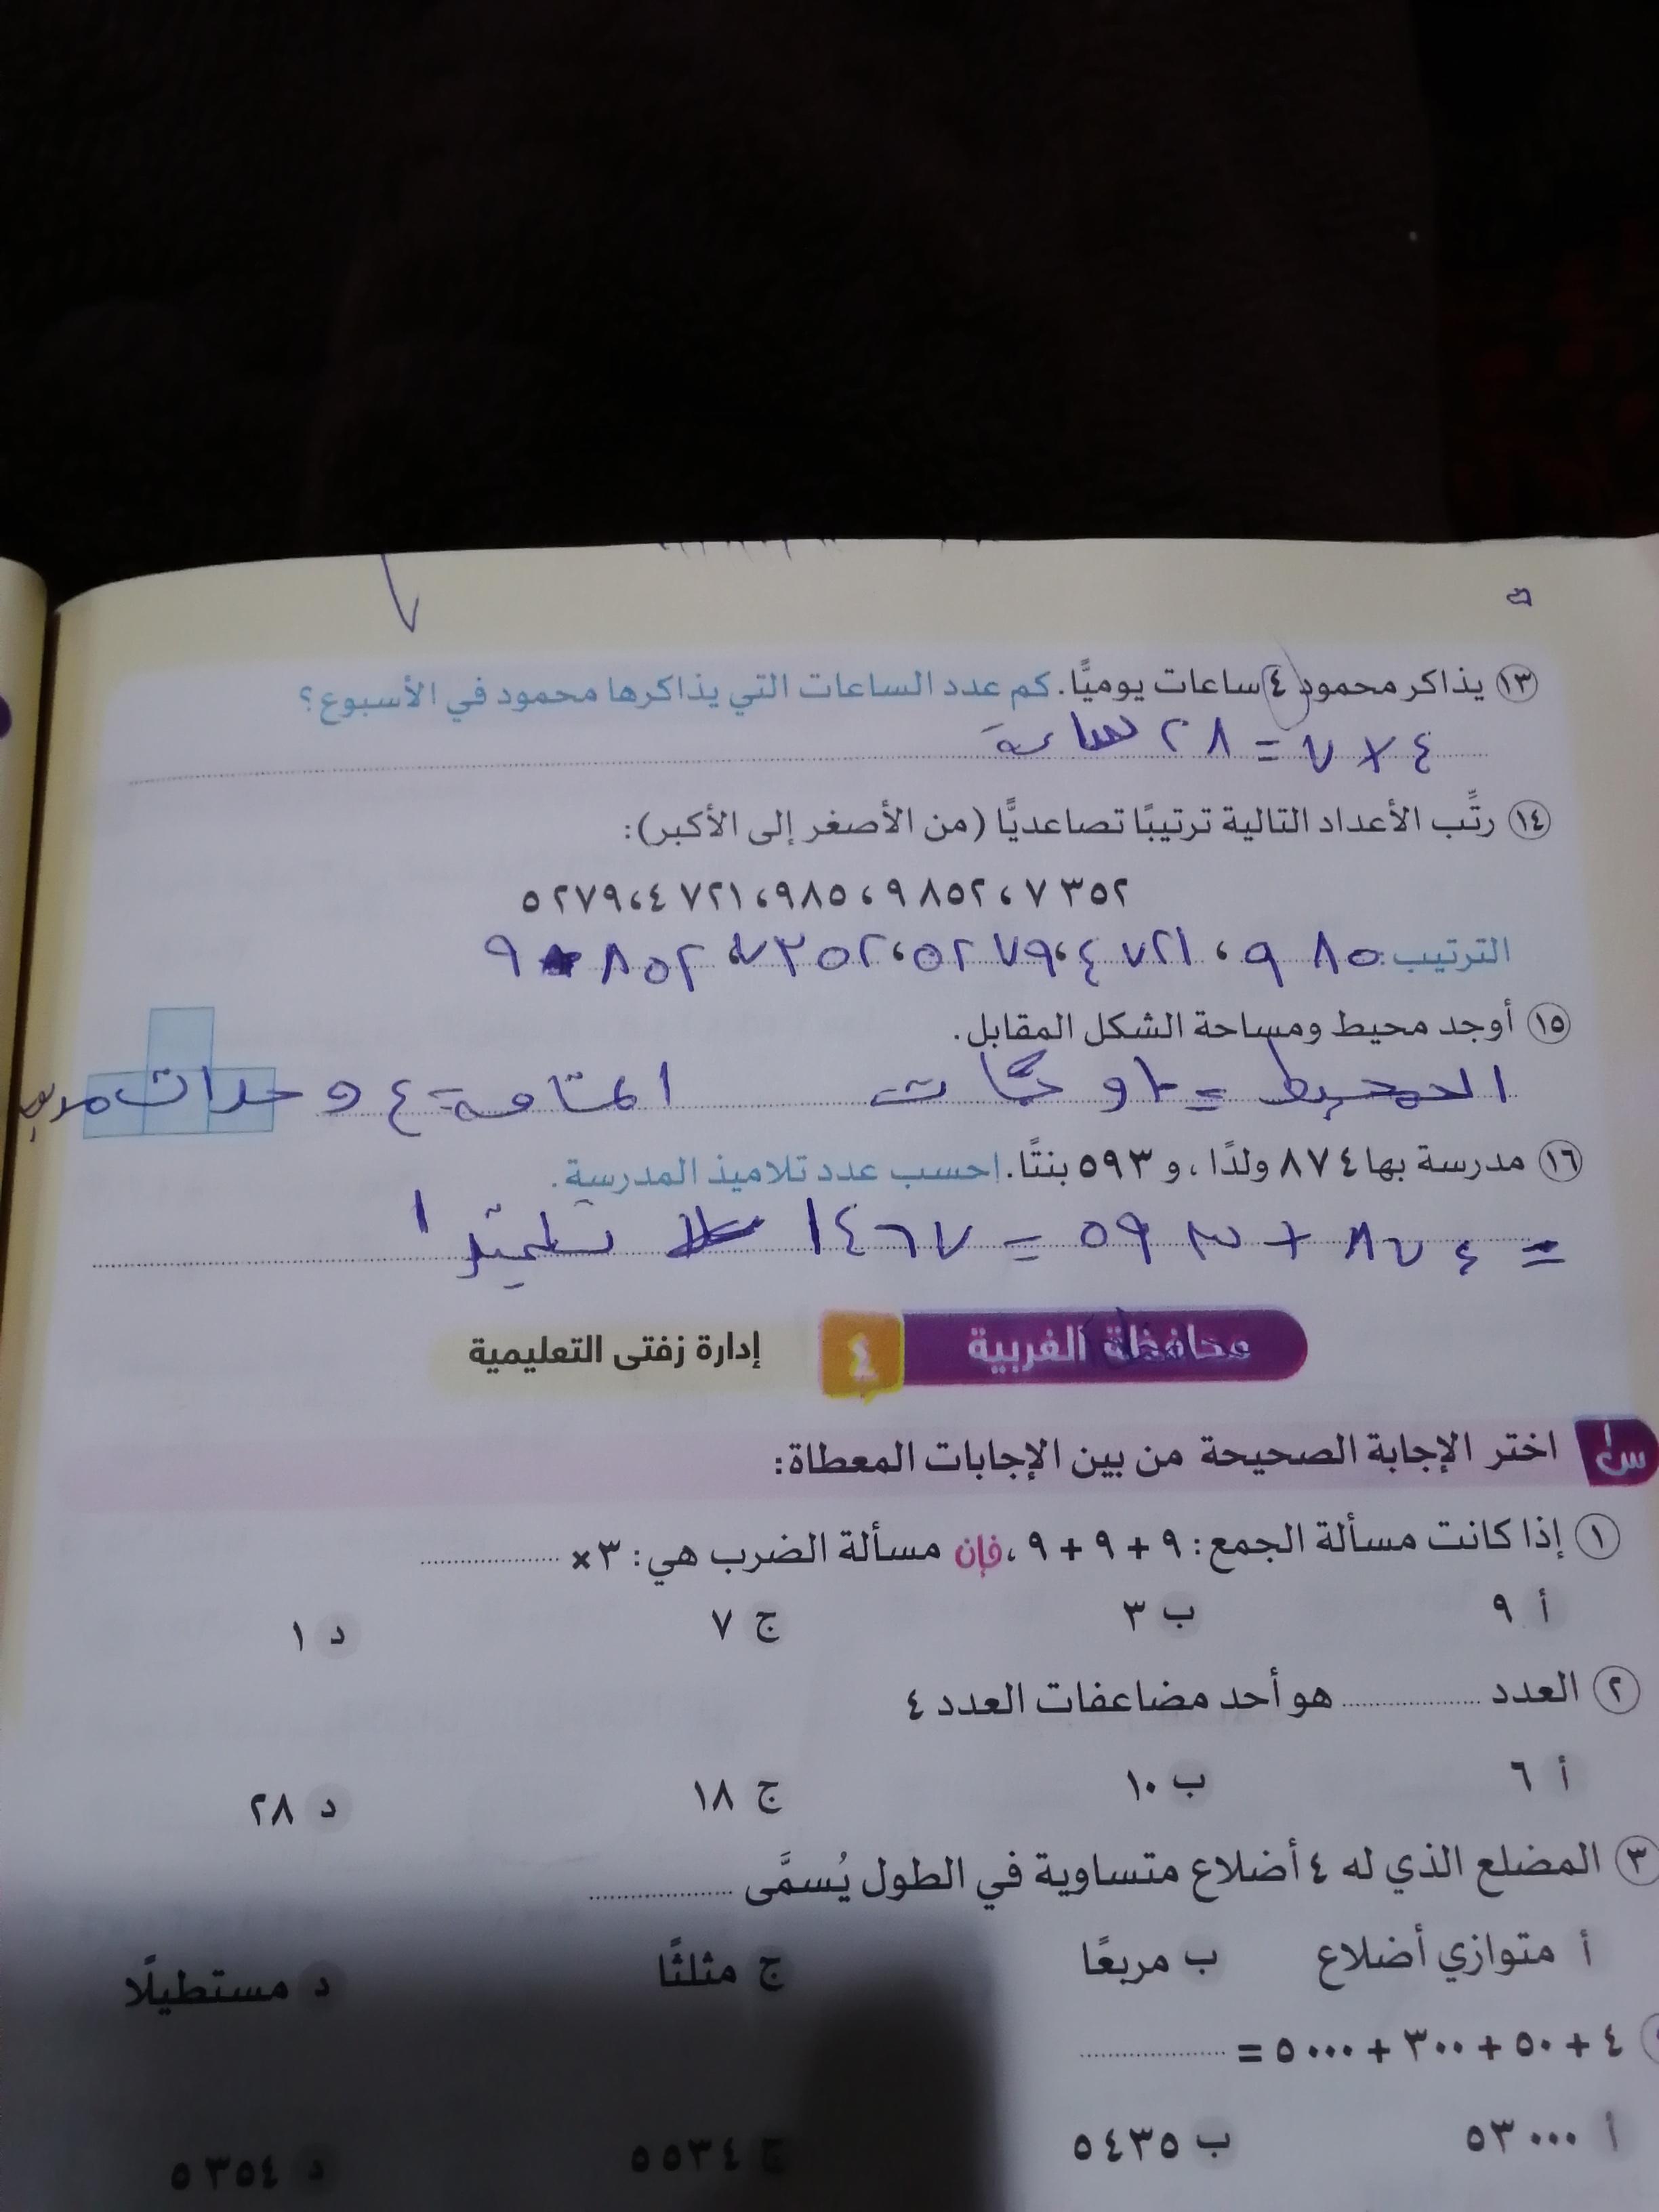 ١٣ يذاكر محمود ٤ ساعات يوميًّا. كم عدد الساعات التي يذاكرها محمود في الأسبوع؟
٤ × ٧ = ٢٨ ساعة
١٤ رتِّب الأعداد التالية ترتيبًا تصاعديًّا (من الأصغر إلى الأكبر):
٧٣٥٢ ، ٩٨٥٢ ، ٩٨٥ ، ٤٧٢١ ، ٥٢٧٩
الترتيب: ٩٨٥ ، ٤٧٢١ ، ٥٢٧٩ ، ٧٣٥٢ ، ٩٨٥٢
١٥ أوجد محيط ومساحة الشكل المقابل.
المحيط = ١٠ المساحة = ٤ وحدات
١٦ مدرسة بها ٨٧٤ ولدًا ، و ٥٩٣ بنتًا. احسب عدد تلاميذ المدرسة.
= ٨٧٤ + ٥٩٣ = ١٤٦٧ تلميذا
محافظة الغربية ٤ إدارة زفتى التعليمية
س١ اختر الإجابة الصحيحة من بين الإجابات المعطاة:
١ إذا كانت مسألة الجمع: ٩ + ٩ + ٩ ، فإن مسألة الضرب هي: ٣ × ..............
أ ٩ ب ٣ ج ٧ د ١
٢ العدد .............. هو أحد مضاعفات العدد ٤
أ ٦ ب ١٠ ج ١٨ د ٢٨
٣ المضلع الذي له ٤ أضلاع متساوية في الطول يُسمَّى ..............
أ متوازي أضلاع ب مربعًا ج مثلثًا د مستطيلًا
٤ + ٥٠ + ٣٠٠ + ٥٠٠٠ = ..............
أ ٥٣٠٠٠ ب ٥٤٣٥ ج ٥٥٣٤ د ٥٣٥٤